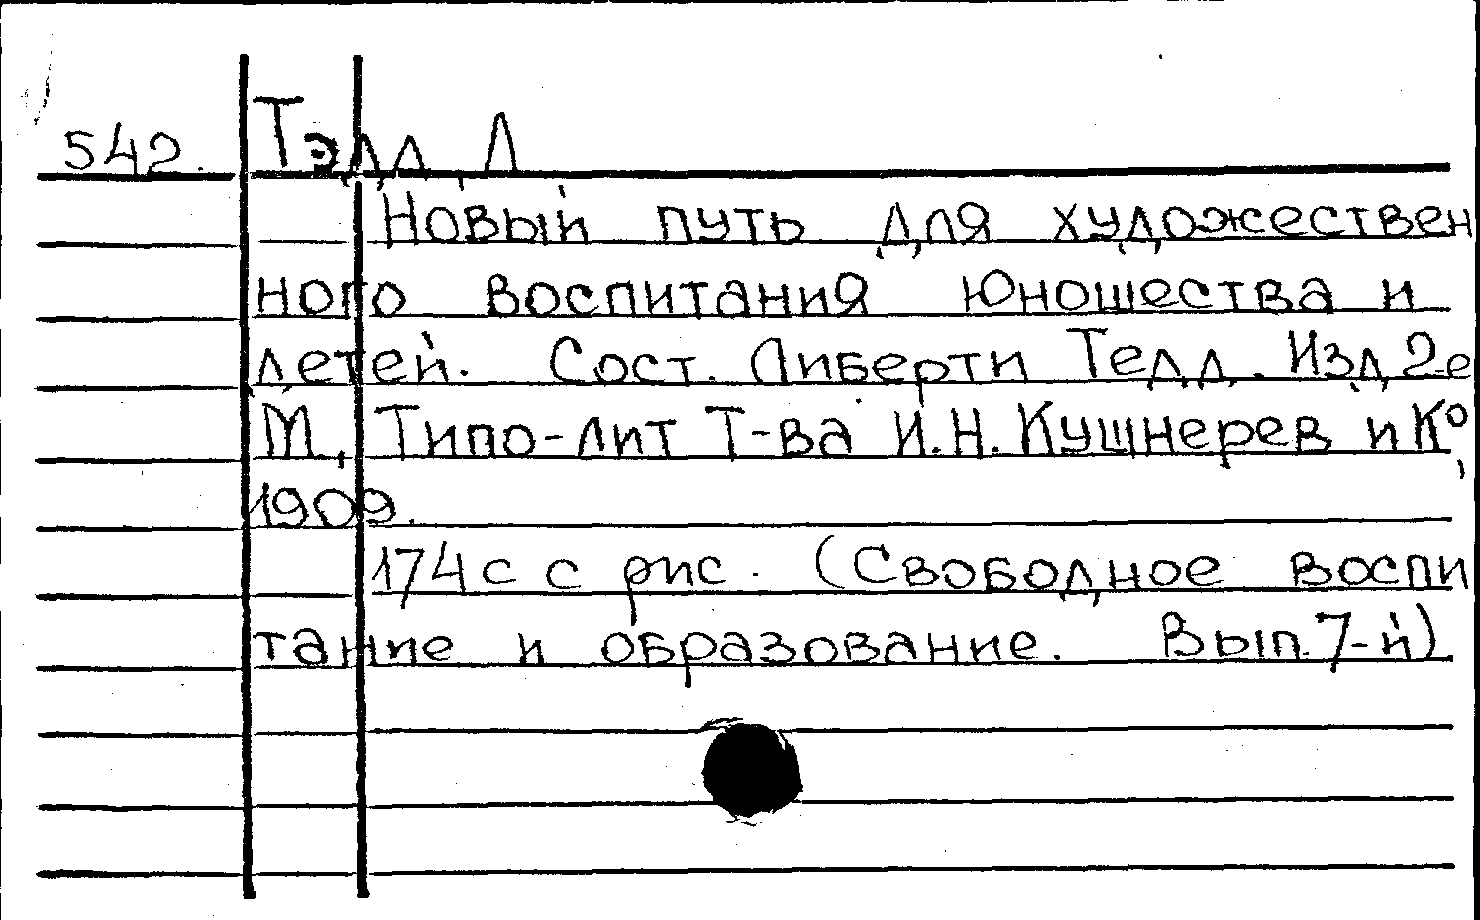 542. Тэдд, Л
Новый путь для художествен
ного воспитания юношества и
детей. Сост. Либерти Тедд. Изд 2-е
М, Типо-лит Т-ва И.Н. Кушнерев и К°,
1909.
174 с с рис. (Свободное воспи
тание и образование. Вып. 7-й)